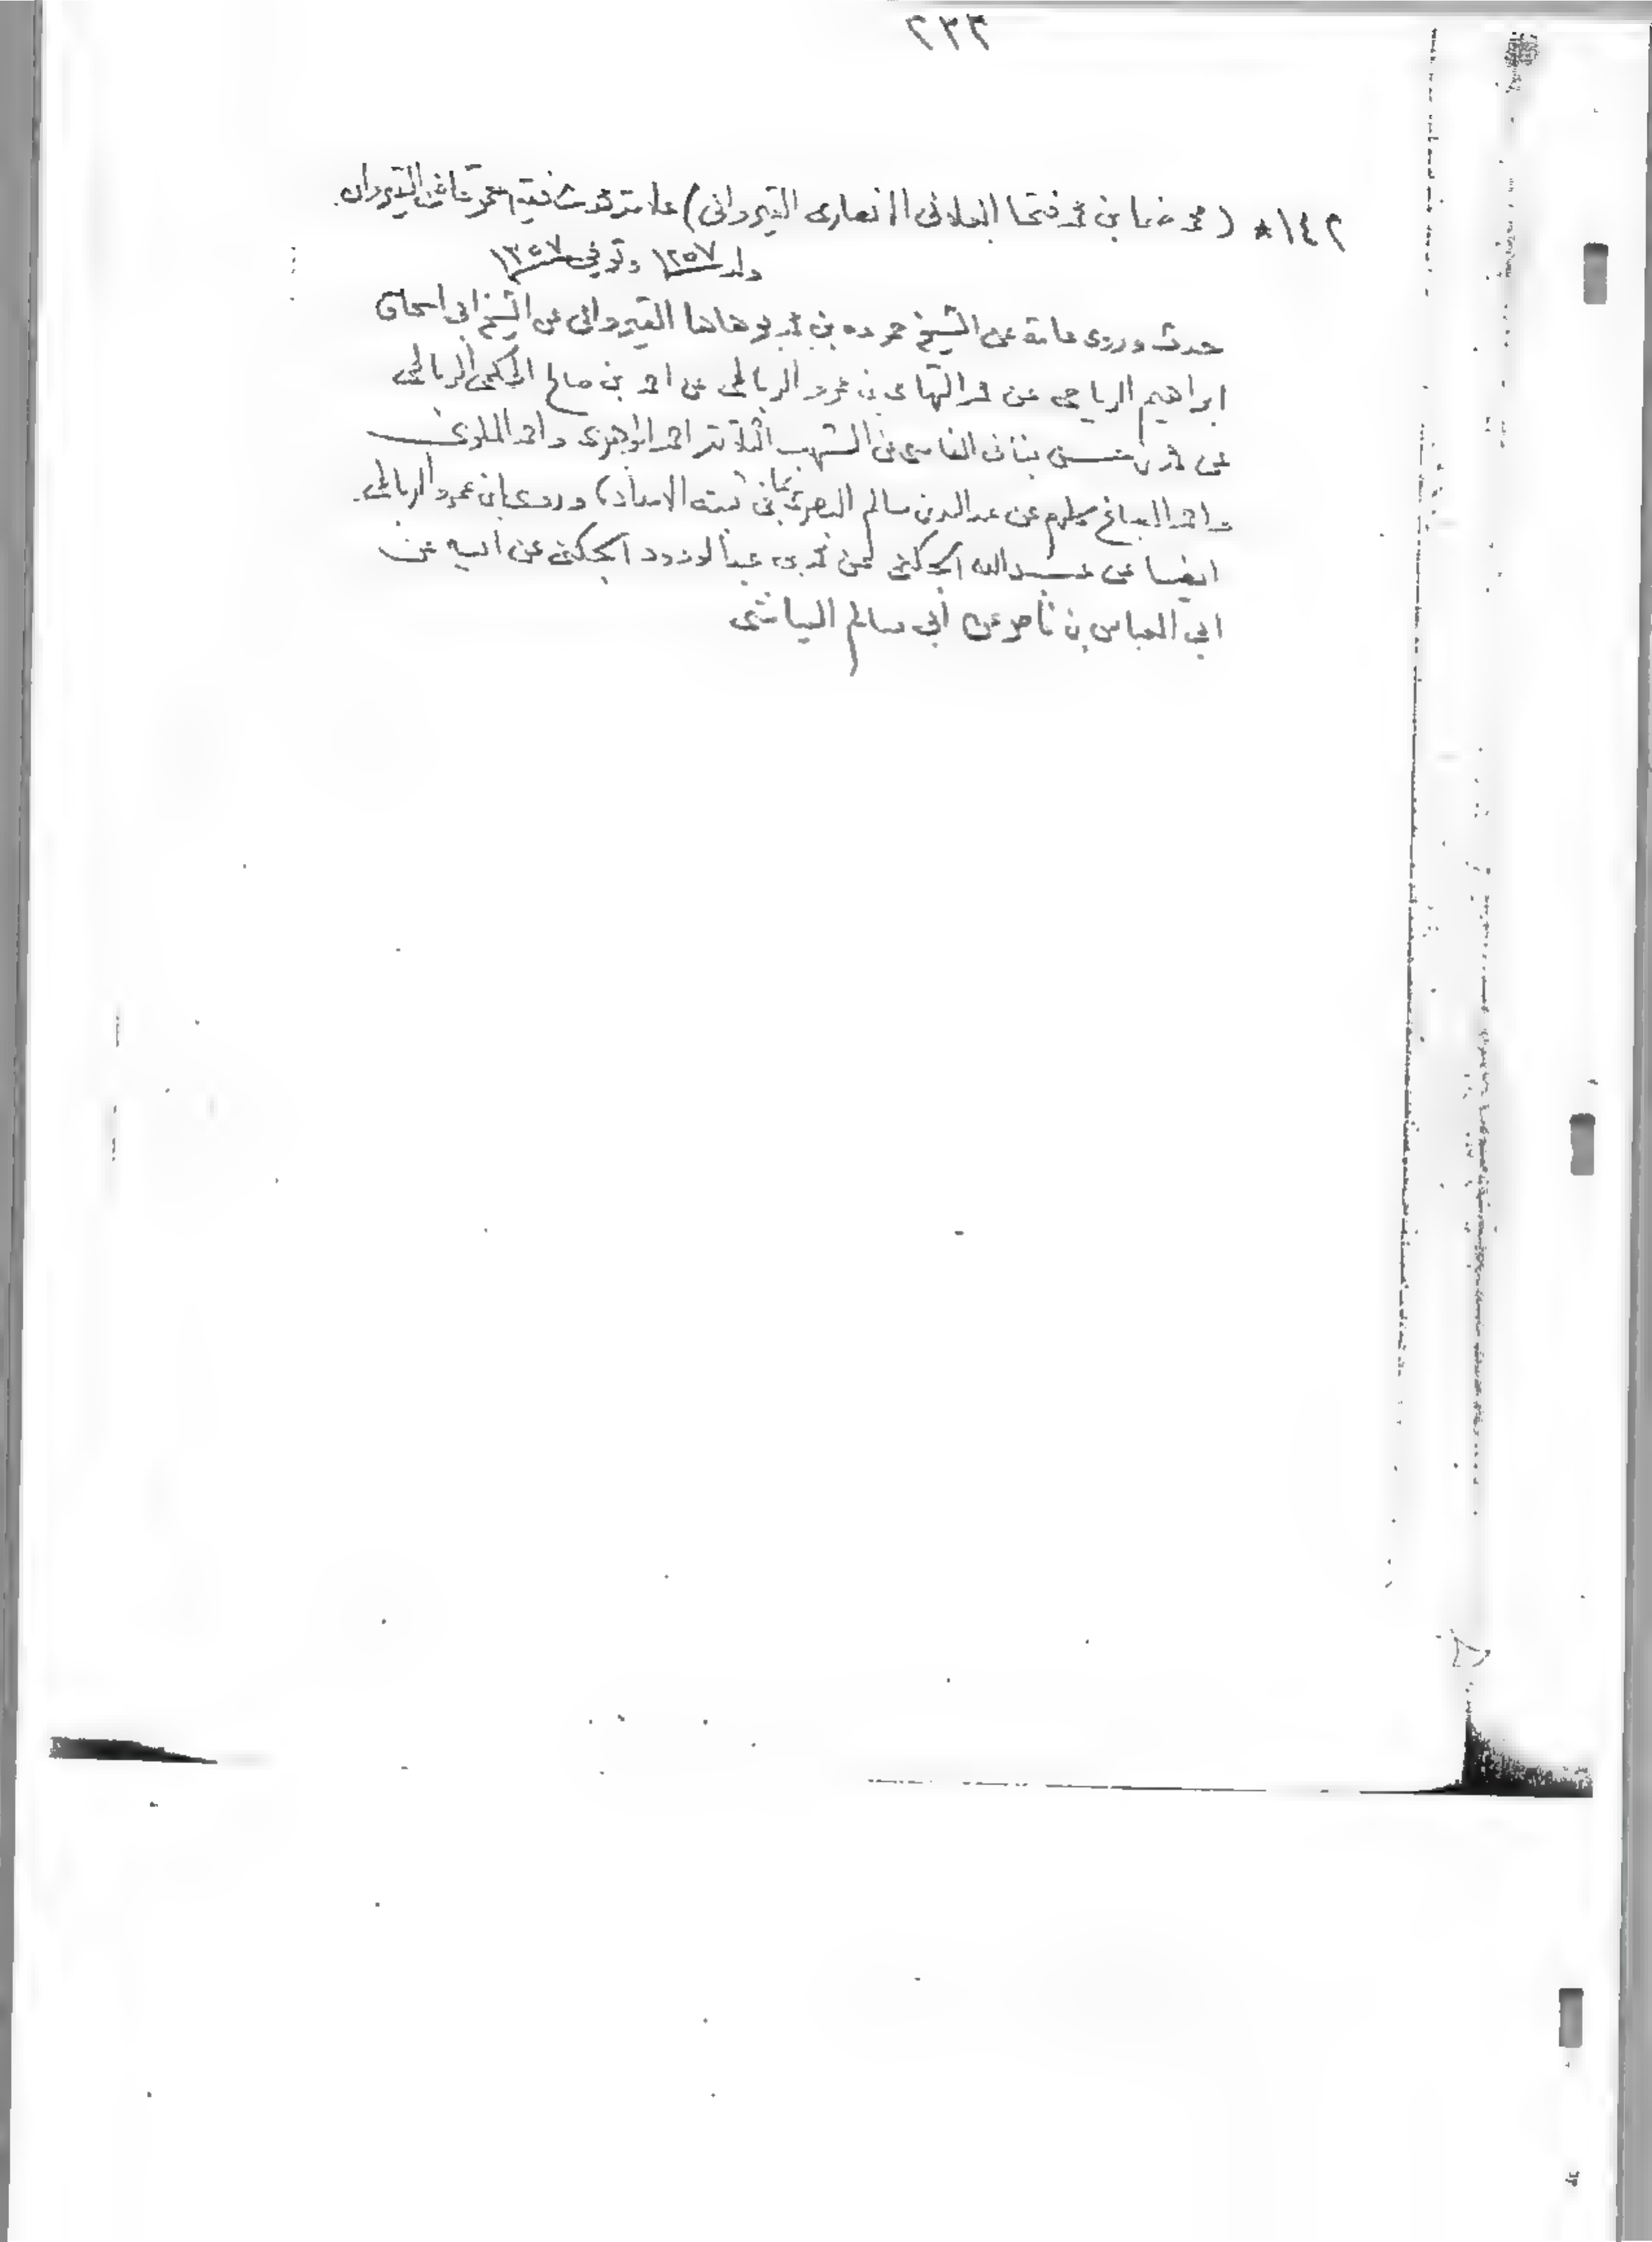 ٢٣٢
١٤٢* (محمد ضما بن محمد فتحا العلاني الانصاري القيرواني) علامة محدث فقيه معمر قاضي القيروان.
ولد ١٢٥٧ وتوفي ١٣٥٧
حدث وروى عامة عن الشيخ حموده بن محمد بوهاها القيرواني عن الشيخ ابي اسحاق
ابراهيم الرياحي عن محمد التهامي بن عمرو الرباطي عن احمد بن صالح الحكمي الرباطي
عن محمد بن حسن بناني الفاسي عن الشهب الثلاثة احمد الجوهري واحمد الملوي
واحمد الصباغ كلهم عن عبدالله بن سالم البصري بما في ثبته (الامداد) وروى ابن عمرو الرباطي
ايضا عن عبدالله الجكني عن محمد بن عبدالودود الجكني عن ابيه عن
ابي العباس بن ناصر عن ابي سالم العياشي